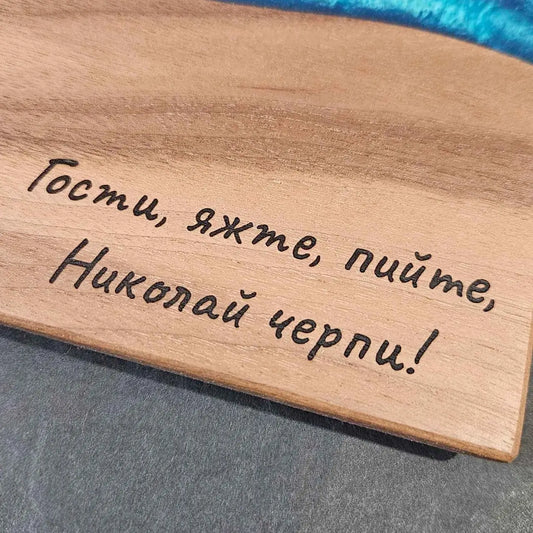 Гости, яжте, пийте,
Николай черпи!